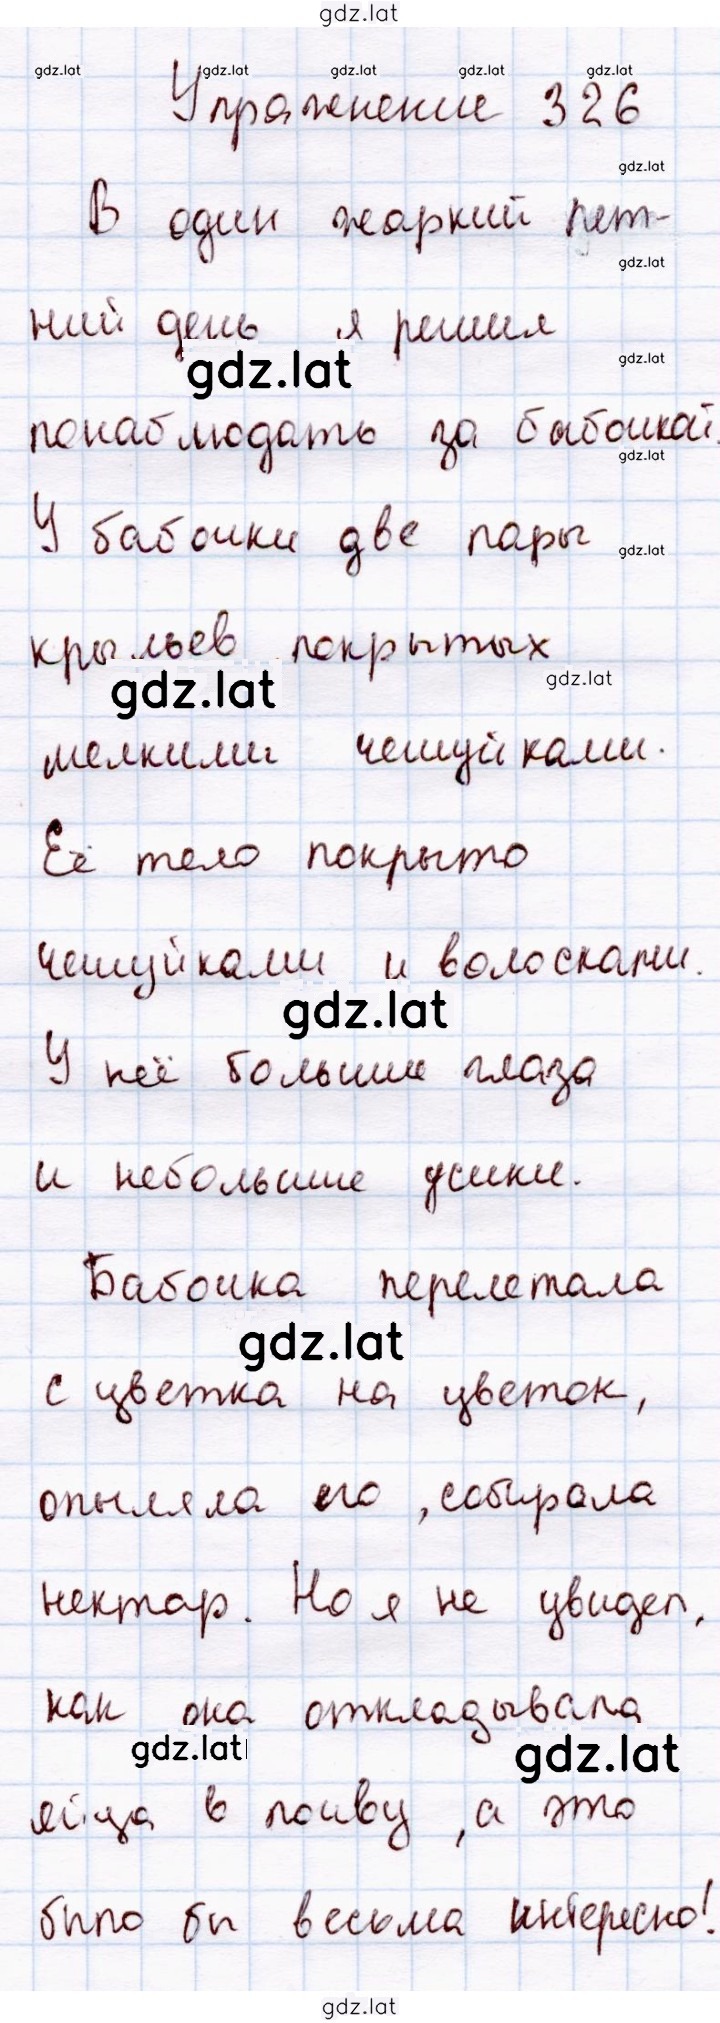 gdz.lat
gdz.lat gdz.lat gdz.lat gdz.lat gdz.lat
Упражнение 326
gdz.lat
В один жаркий лет-
gdz.lat
ний день я решил
gdz.lat gdz.lat
понаблюдать за бабочкой.
gdz.lat
У бабочки две пары
gdz.lat
крыльев покрытых
gdz.lat gdz.lat
мелкими чешуйками.
Её тело покрыто
чешуйками и волосками.
gdz.lat
У неё большие глаза
и небольшие усики.
Бабочка перелетала
gdz.lat
с цветка на цветок,
опыляла его, собирала
нектар. Но я не увидел,
как она откладывала
gdz.lat gdz.lat
яйца в почву, а это
было бы весьма интересно!
gdz.lat